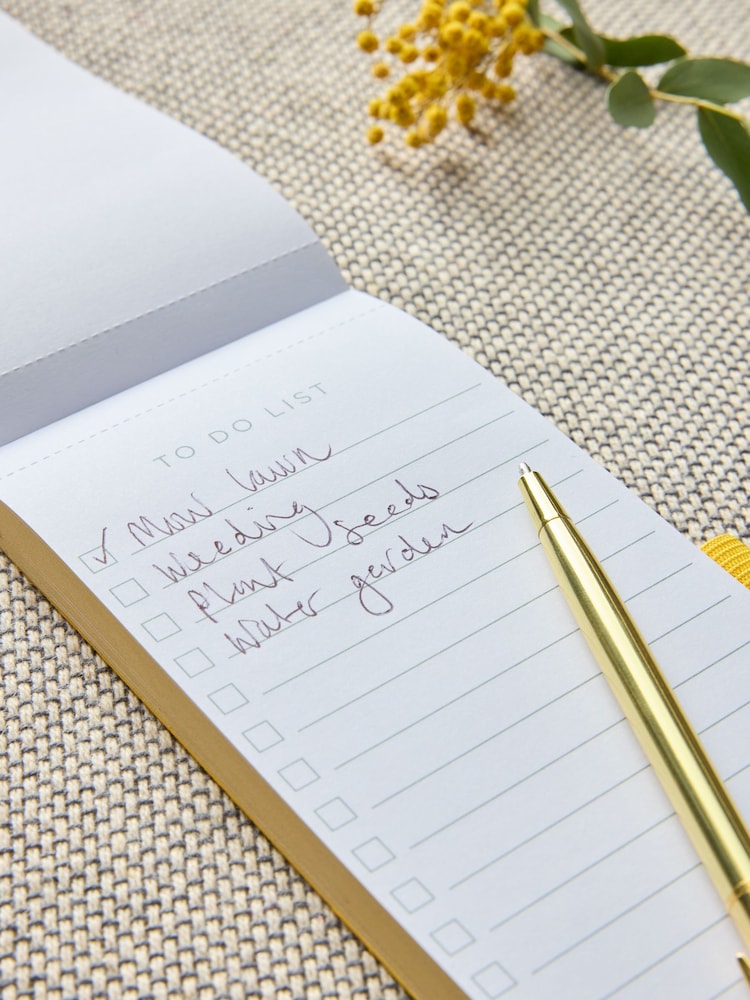 TO DO LIST
Mow lawn
Weeding
Plant seeds
Water garden